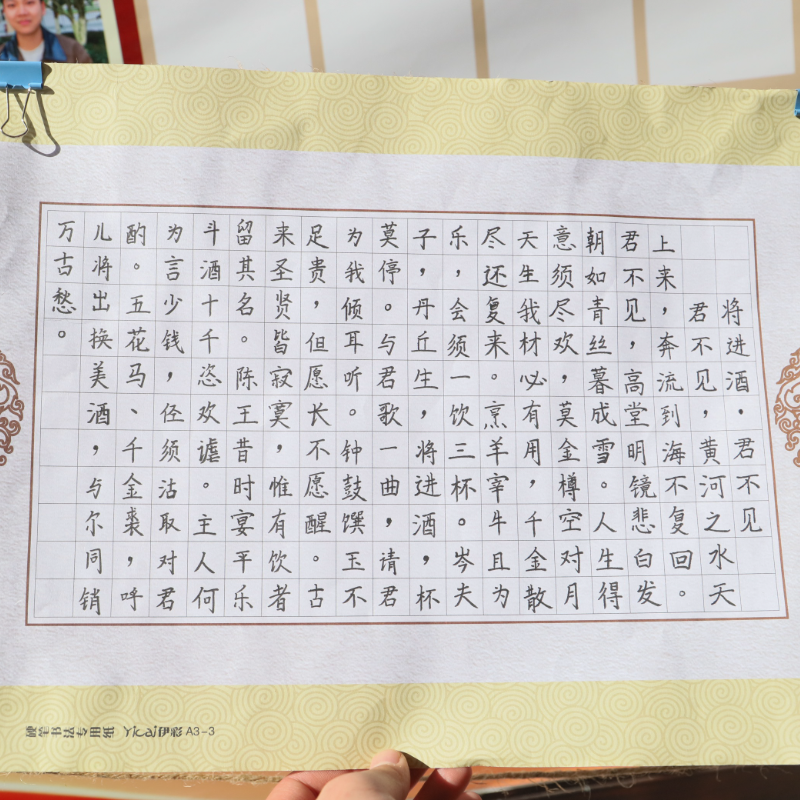 将进酒·君不见
君不见，黄河之水天
上来，奔流到海不复回。
君不见，高堂明镜悲白发
朝如青丝暮成雪。人生得
意须尽欢，莫金樽空对月
天生我材必有用，千金散
尽还复来。烹羊宰牛且为
乐，会须一饮三杯。岑夫
子，丹丘生，将进酒，杯
莫停。与君歌一曲，请君
为我倾耳听。钟鼓馔玉不
足贵，但愿长不愿醒。古
来圣贤皆寂寞，惟有饮者
留其名。陈王昔时宴平乐
斗酒十千恣欢谑。主人何
为言少钱，径须沽取对君
酌。五花马、千金裘，呼
儿将出换美酒，与尔同销
万古愁。
硬笔书法专用纸 Yicai伊彩 A3-3